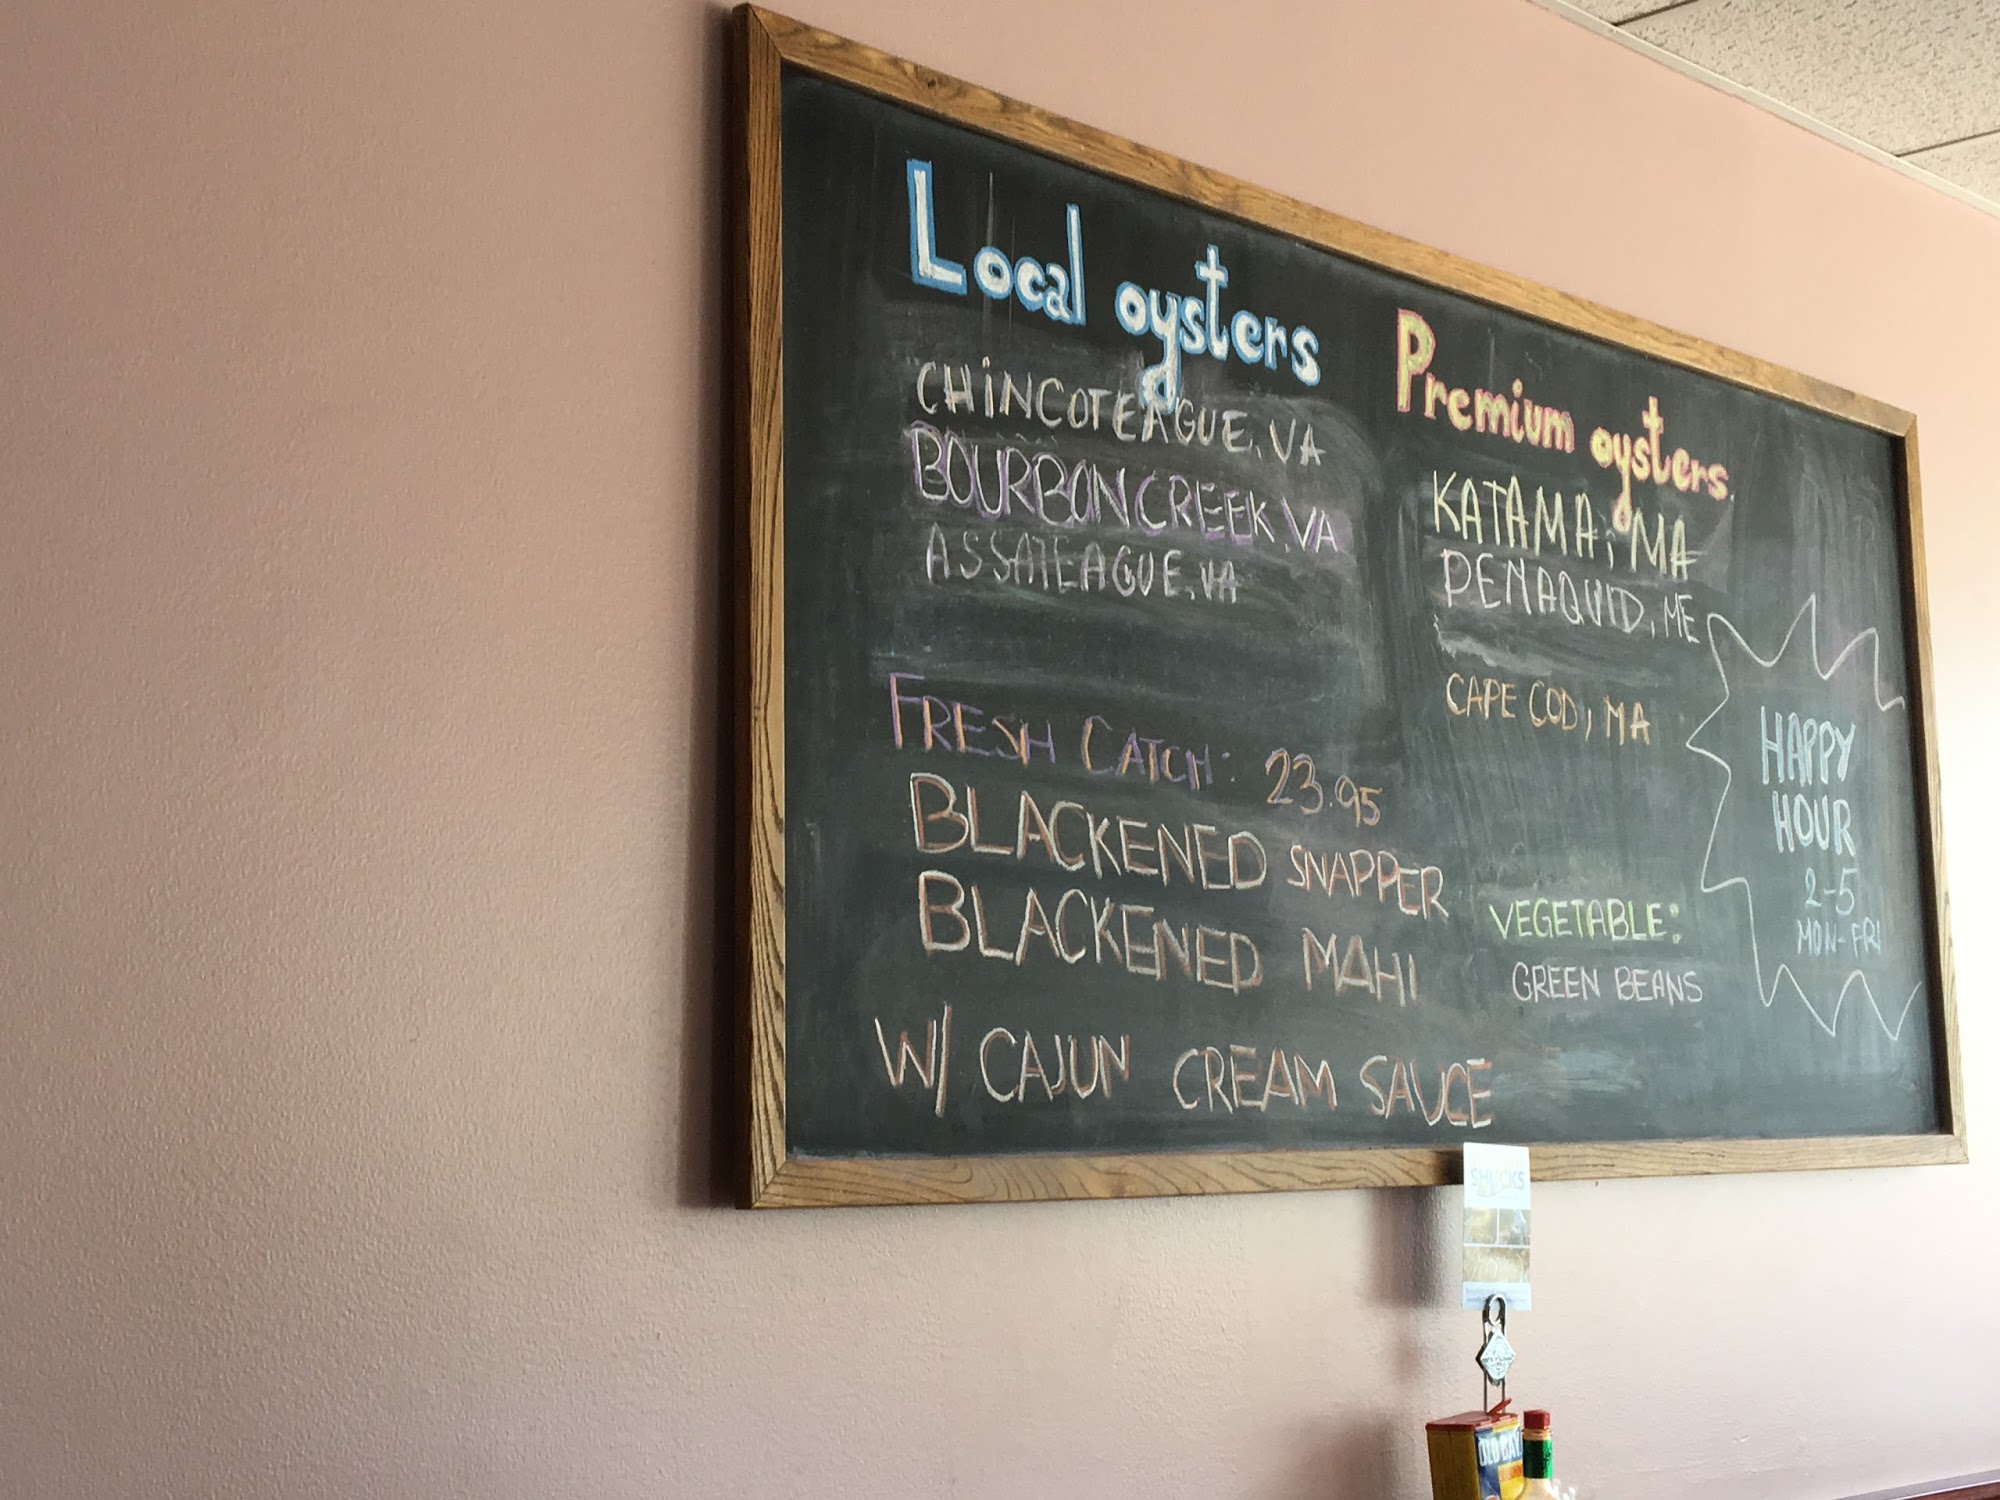 Local oysters
CHINCOTEAGUE, VA
BOURBON CREEK, VA
ASSATEAGUE, VA
Premium oysters
KATAMA, MA
PEMAQUID, ME
CAPE COD, MA
FRESH CATCH: 23.95
BLACKENED SNAPPER
BLACKENED MAHI
W/ CAJUN CREAM SAUCE
VEGETABLE:
GREEN BEANS
HAPPY
HOUR
2-5
MON-FRI
SHUCKS
OLD BAY